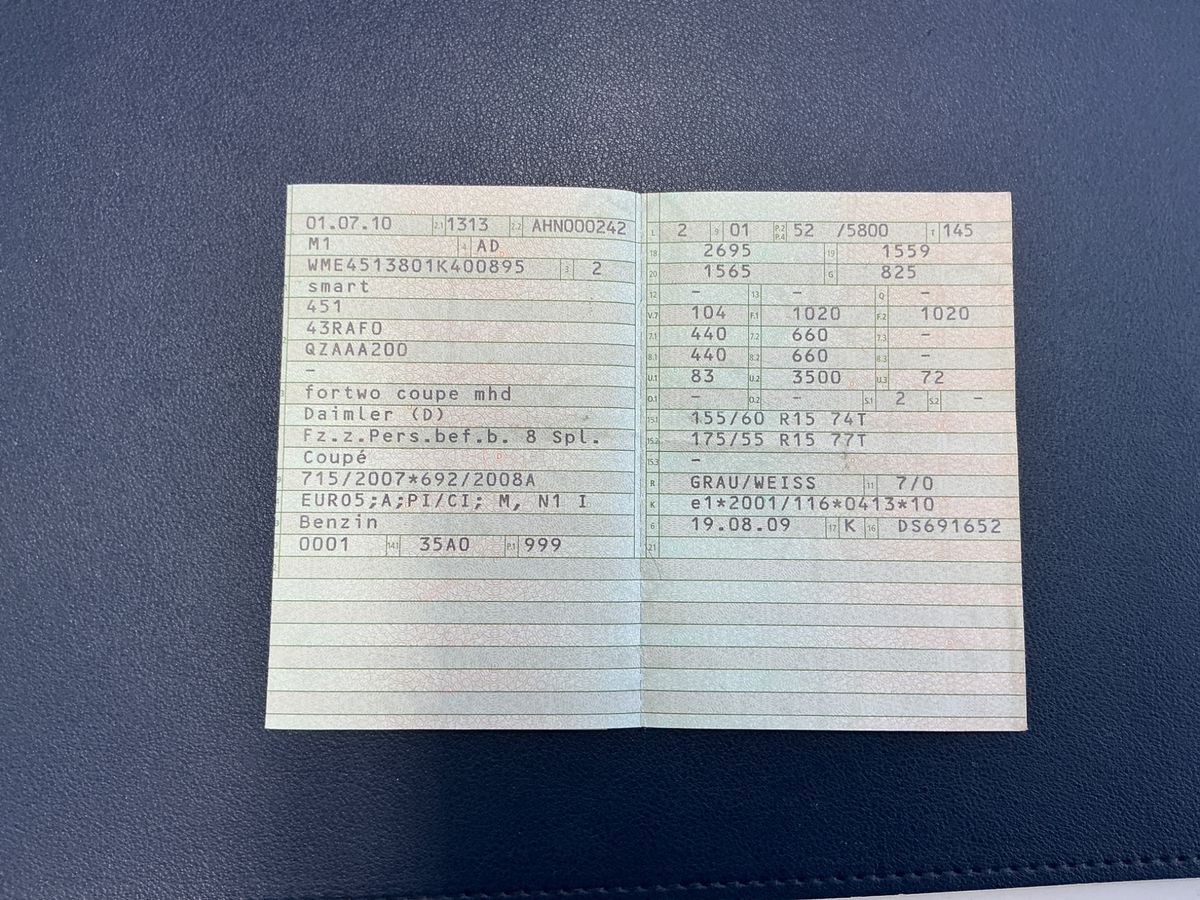 01.07.10 2.1 1313 2.2 AHN000242
M1 4 AD
WME4513801K400895 3 2
smart
451
43RAF0
QZAAA200
–
fortwo coupe mhd
Daimler (D)
Fz.z.Pers.bef.b. 8 Spl.
Coupé
715/2007*692/2008A
EURO5;A;PI/CI; M, N1 I
Benzin
0001 14.1 35A0 P.1 999
L 2 9 01 P.2 P.4 52 /5800 T 145
18 2695 19 1559
20 1565 G 825
12 – 13 – Q –
V.7 104 F.1 1020 F.2 1020
7.1 440 7.2 660 7.3 –
8.1 440 8.2 660 8.3 –
U.1 83 U.2 3500 U.3 72
O.1 – O.2 – S.1 2 S.2 –
15.1 155/60 R15 74T
15.2 175/55 R15 77T
15.3 –
R GRAU/WEISS 11 7/0
K e1*2001/116*0413*10
6 19.08.09 17 K 16 DS691652
21